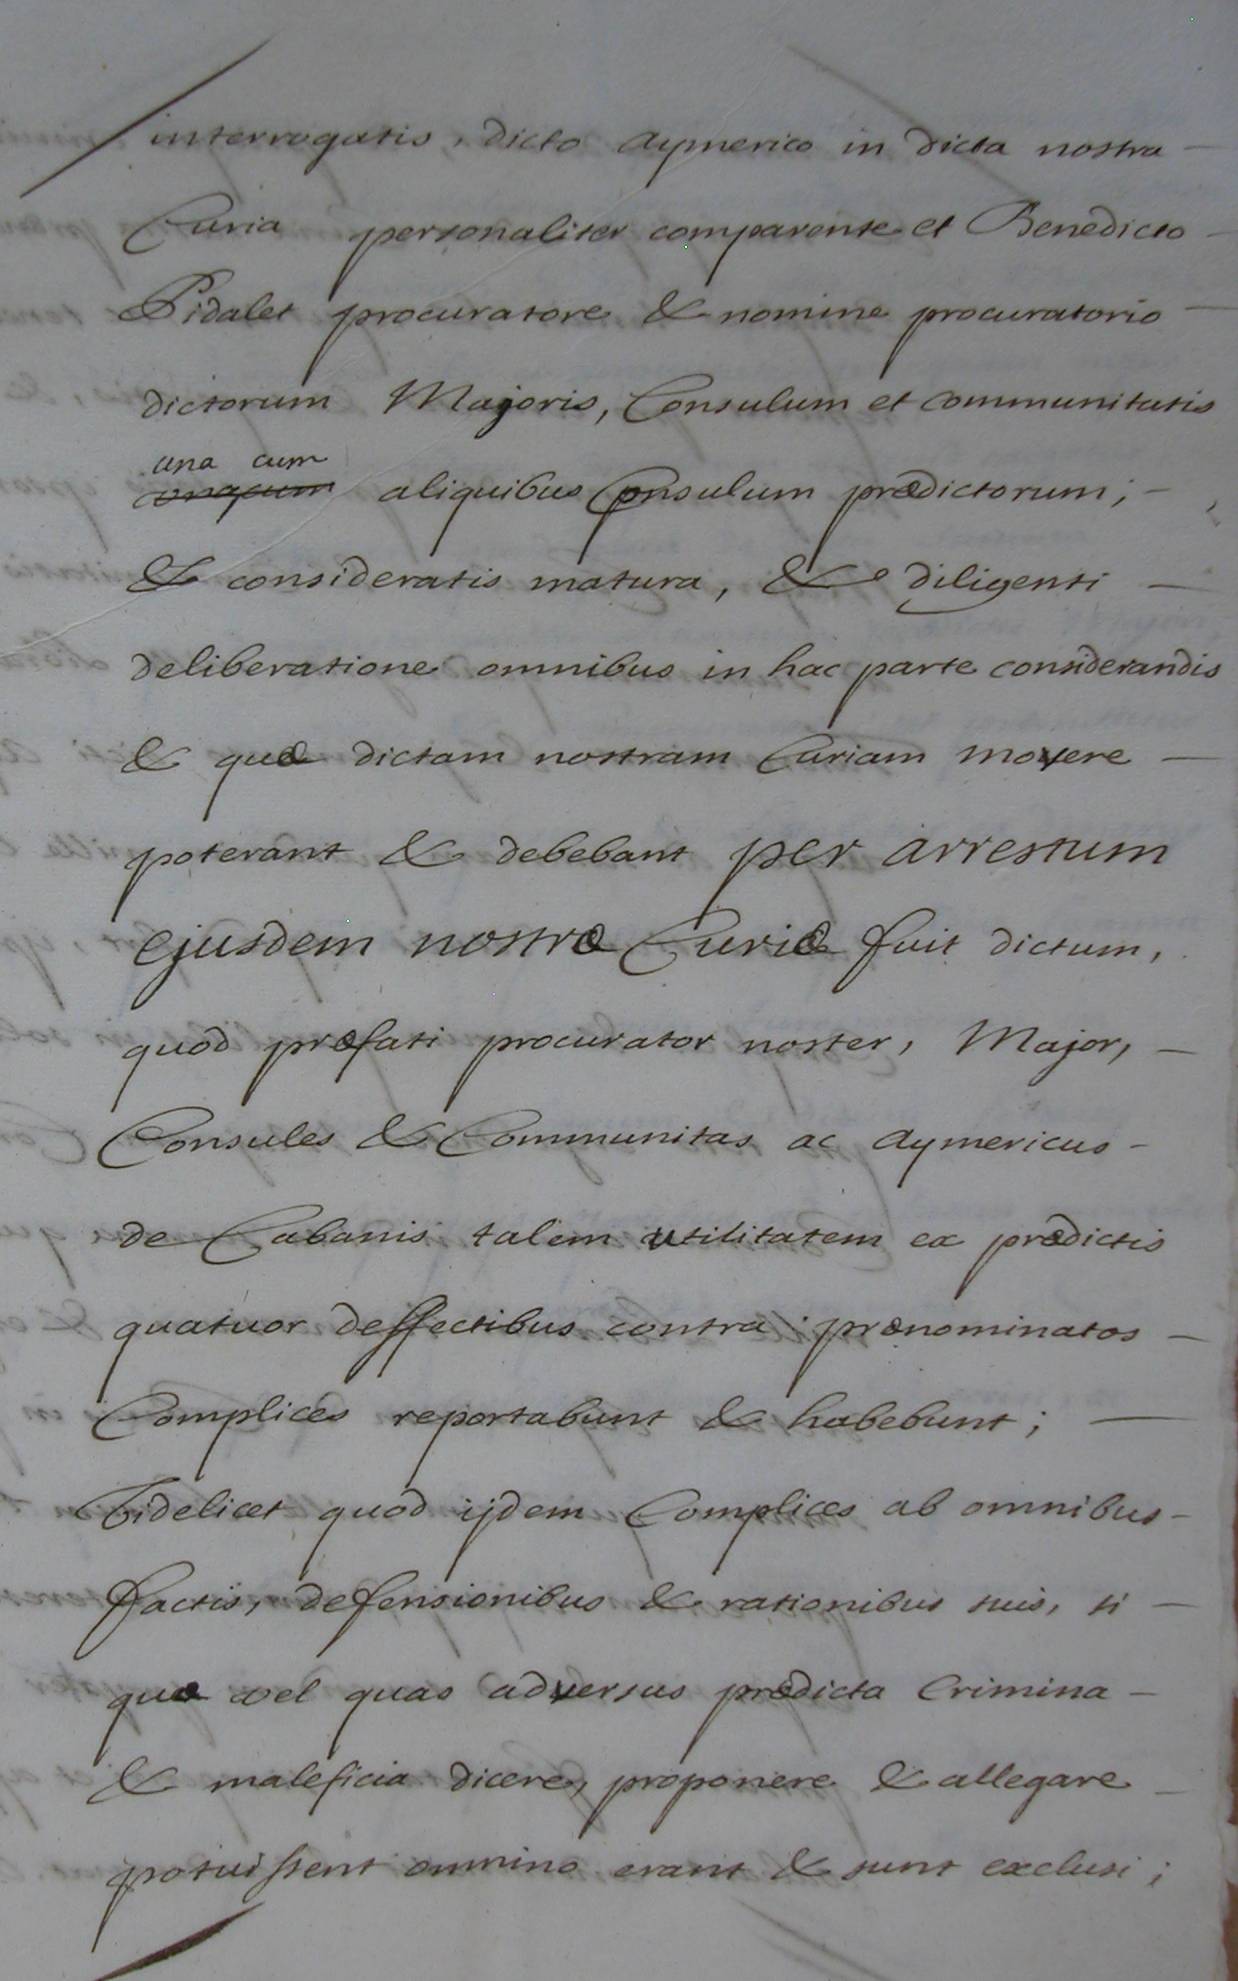 interrogatis, dicto Aymerico in dicta nostra —
Curia personaliter comparente et Benedicto —
Pidalet procuratore & nomine procuratorio —
dictorum Majoris, Consulum et communitatis
una cum
unacum aliquibus Consulum prædictorum; —
& consideratis matura, & diligenti —
deliberatione omnibus in hac parte considerandis
& quæ dictam nostram Curiam movere —
poterant & debebant per arrestum
ejusdem nostræ Curiæ fuit dictum,
quod præfati procurator noster, Major, —
Consules & Communitas ac Aymericus —
de Cabanis talem utilitatem ex prædictis
quatuor deffectibus contra prænominatos —
Complices reportabunt & habebunt; —
Videlicet quod ijdem Complices ab omnibus —
factis, defensionibus & rationibus suis, si —
quæ vel quas adversus prædicta Crimina —
& maleficia dicere, proponere & allegare —
potuissent omnino erant & sunt exclusi;